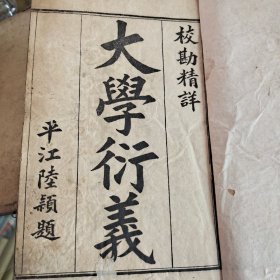 校勘精詳
大學衍義
平江陸潁題